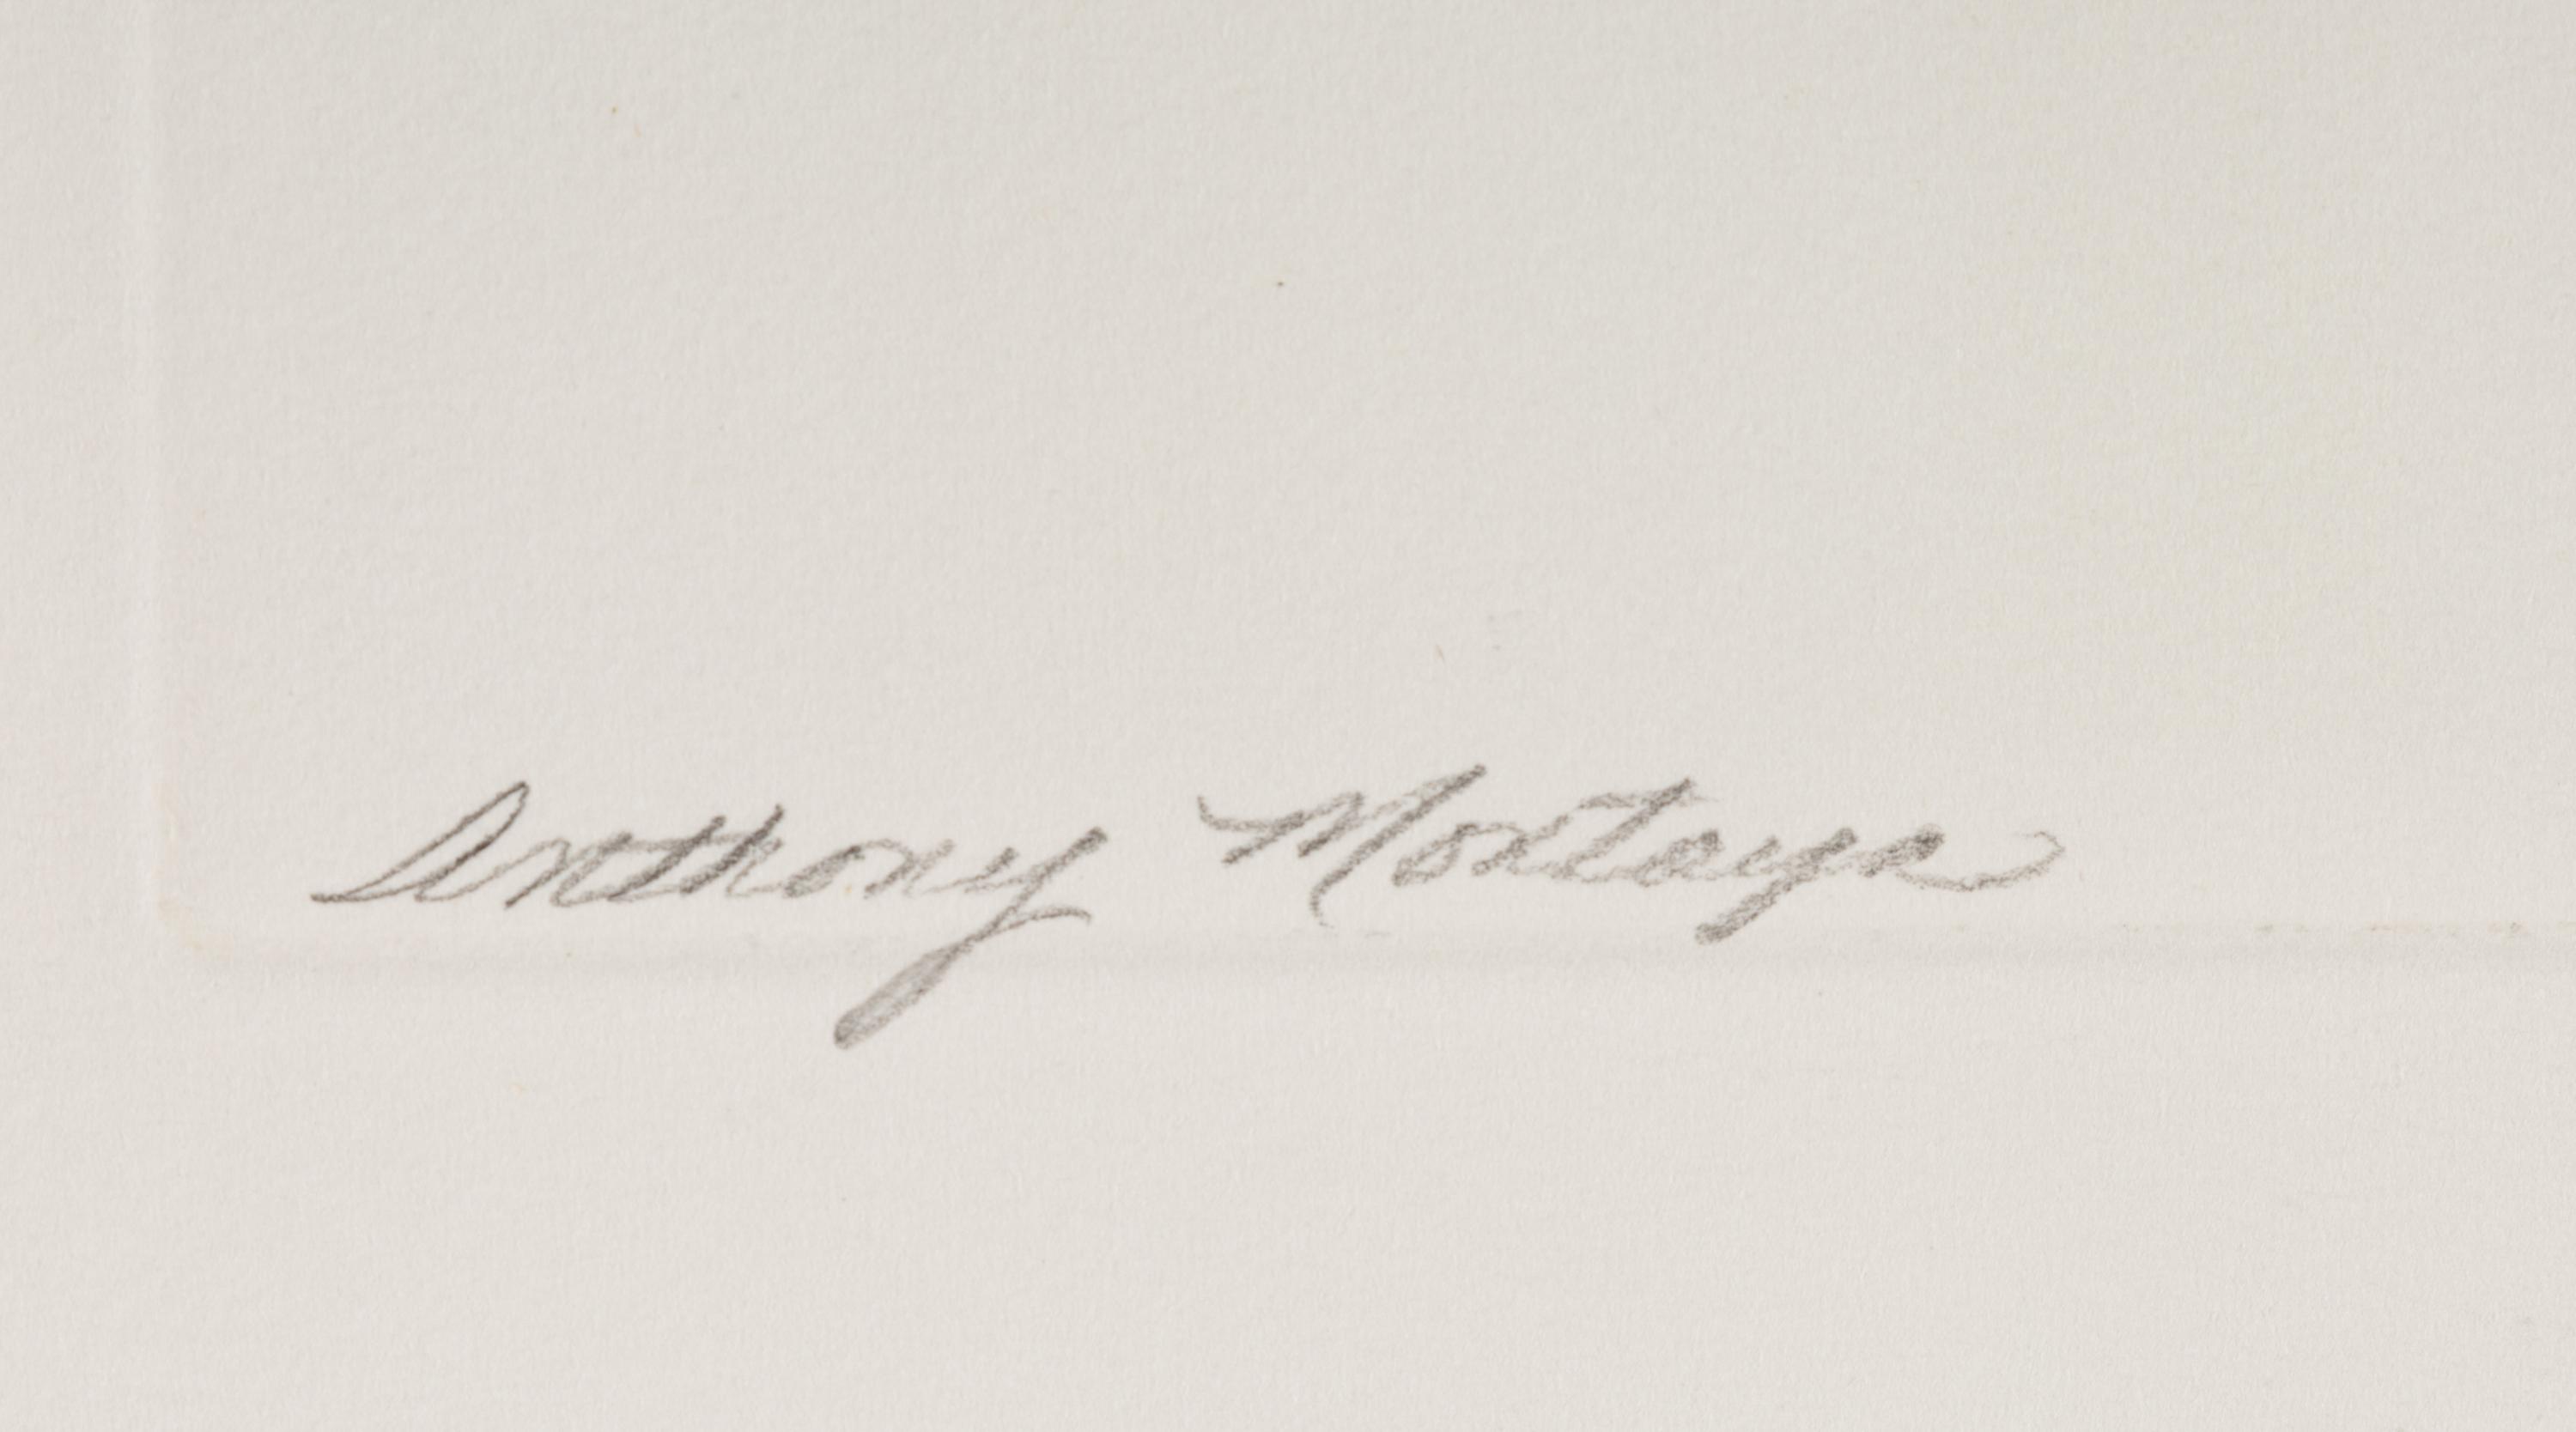 Anthony Montoya